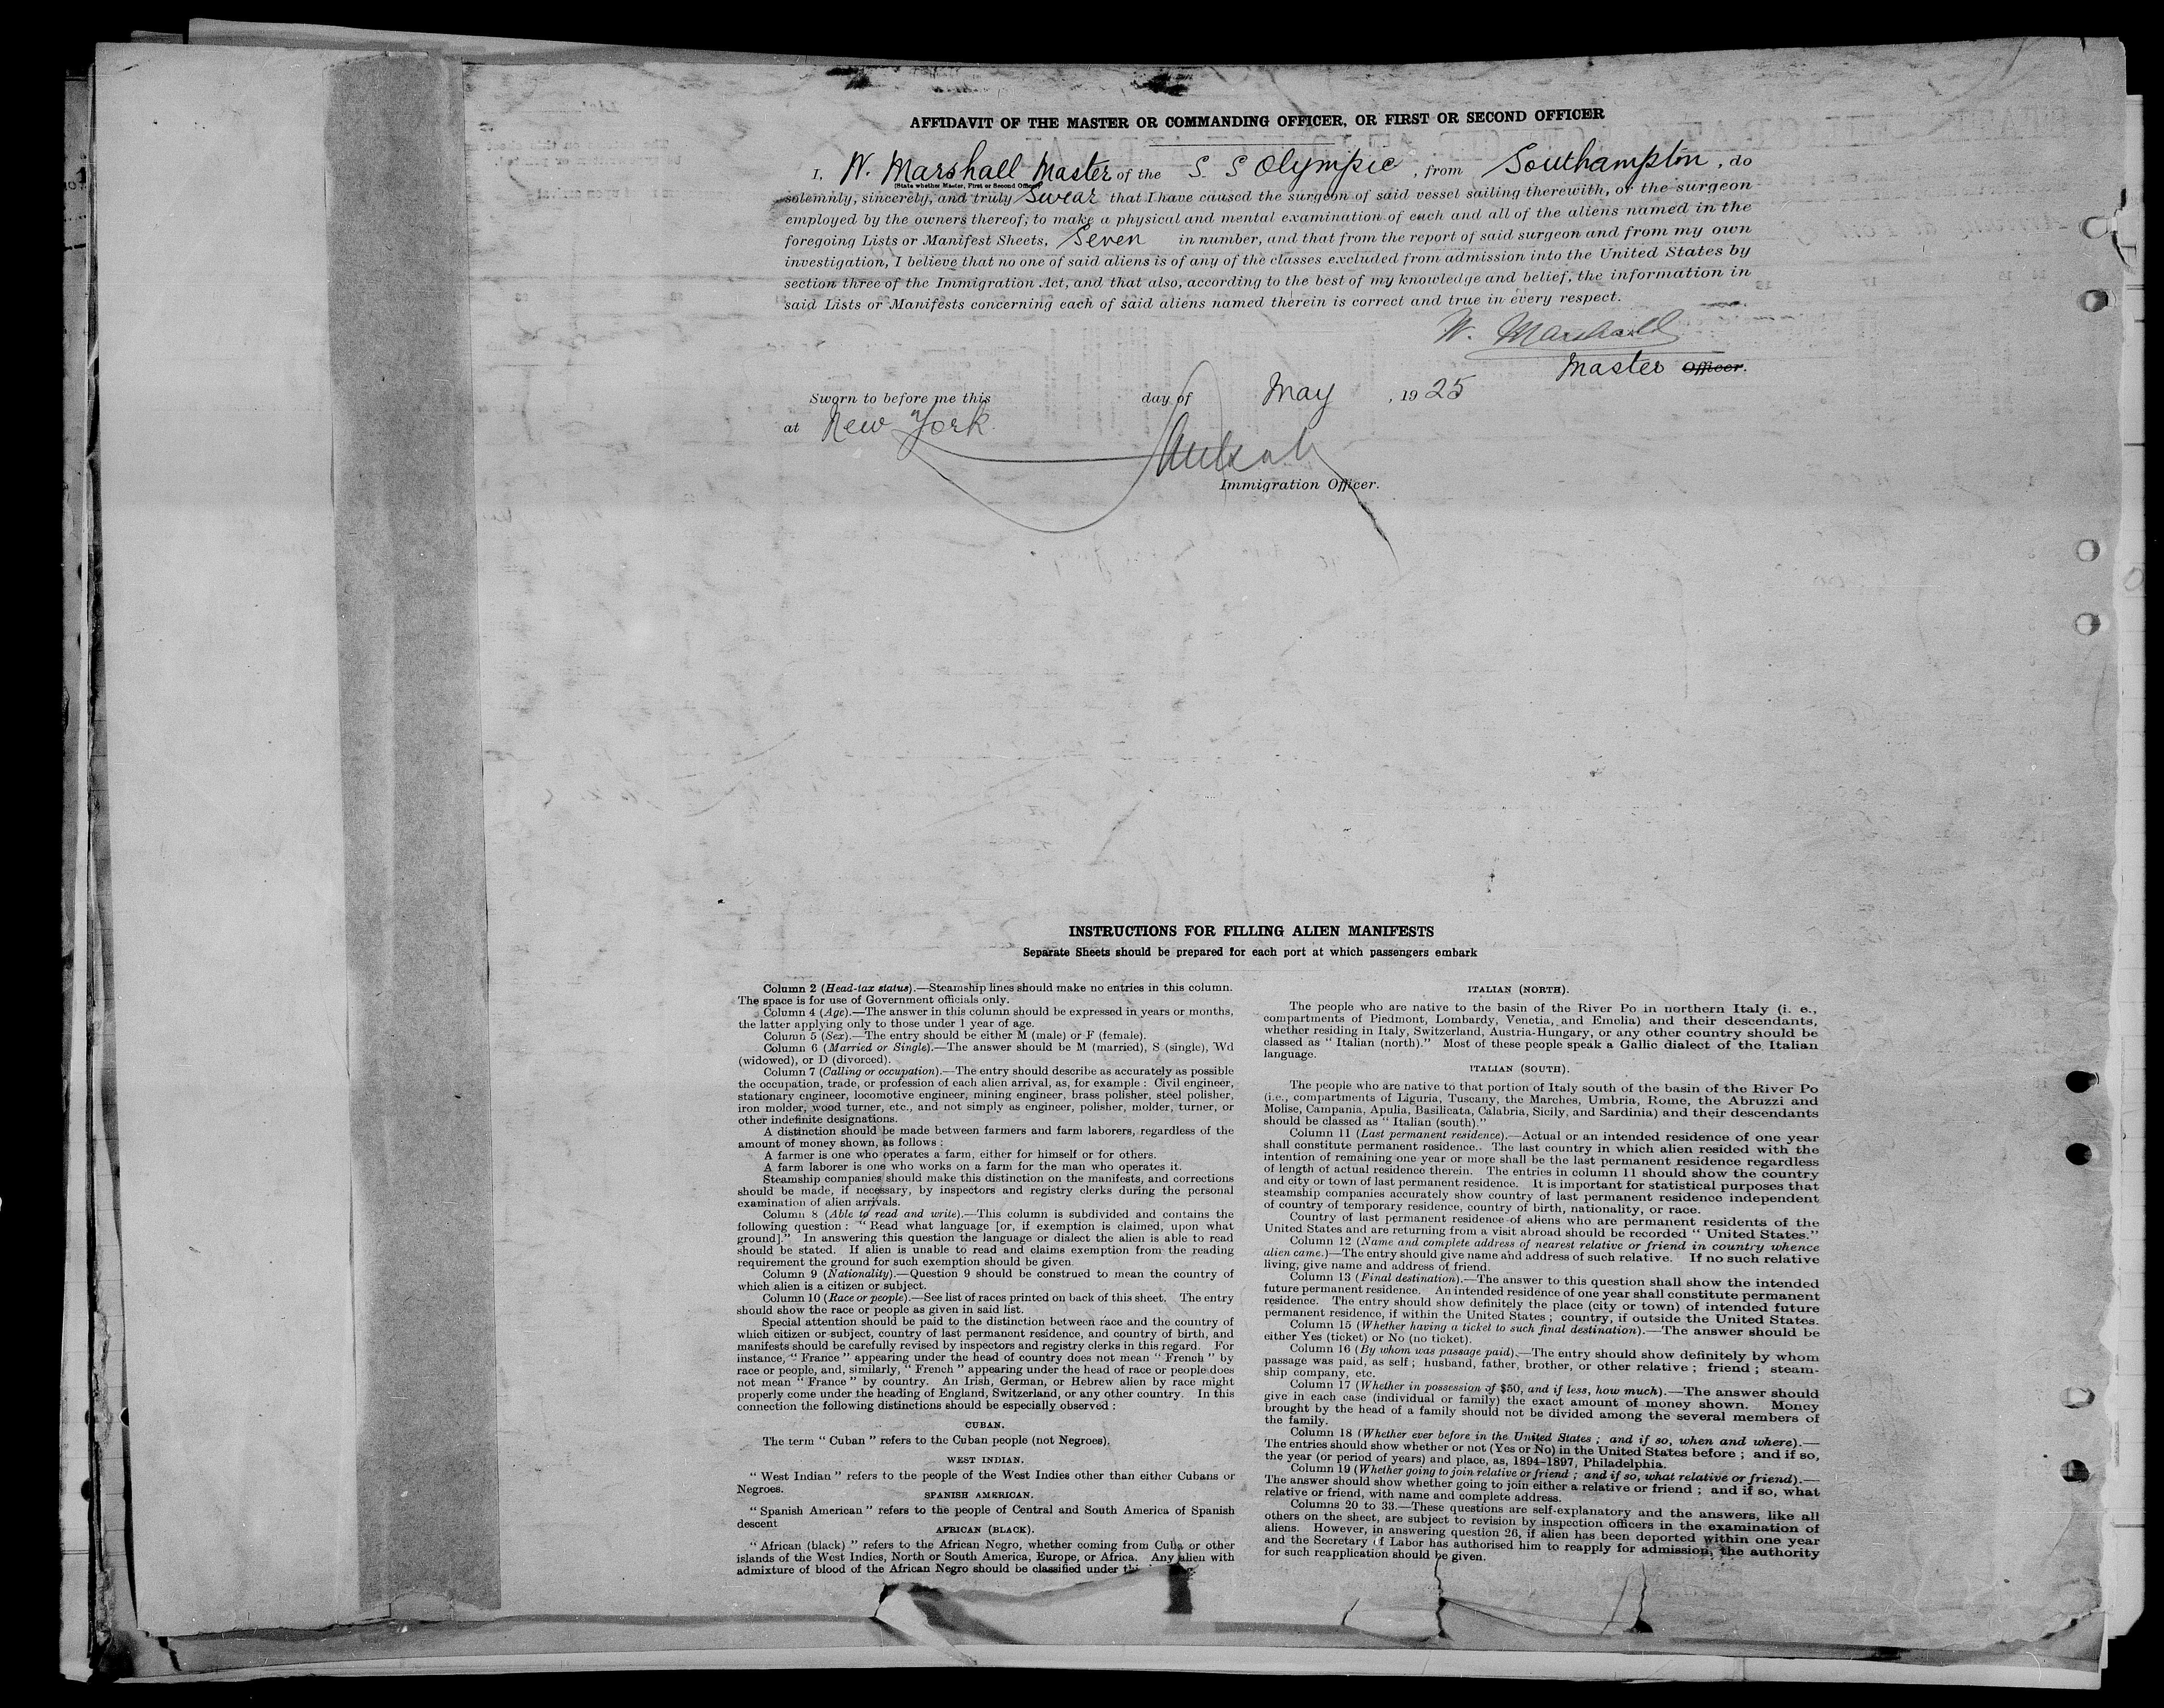 AFFIDAVIT OF THE MASTER OR COMMANDING OFFICER, OR FIRST OR SECOND OFFICER
I, W. Marshall Master of the S. S Olympic, from Southampton, do
(State whether Master, First or Second Officer)
solemnly, sincerely, and truly Swear that I have caused the surgeon of said vessel sailing therewith, or the surgeon
employed by the owners thereof, to make a physical and mental examination of each and all of the aliens named in the
foregoing Lists or Manifest Sheets, Seven in number, and that from the report of said surgeon and from my own
investigation, I believe that no one of said aliens is of any of the classes excluded from admission into the United States by
section three of the Immigration Act, and that also, according to the best of my knowledge and belief, the information in
said Lists or Manifests concerning each of said aliens named therein is correct and true in every respect.
W. Marshall
Master Officer.
Sworn to before me this day of May, 1925
at New York
Immigration Officer.
INSTRUCTIONS FOR FILLING ALIEN MANIFESTS
Separate Sheets should be prepared for each port at which passengers embark
Column 2 (Head-tax status).—Steamship lines should make no entries in this column.
The space is for use of Government officials only.
Column 4 (Age).—The answer in this column should be expressed in years or months,
the latter applying only to those under 1 year of age.
Column 5 (Sex).—The entry should be either M (male) or F (female).
Column 6 (Married or Single).—The answer should be M (married), S (single), Wd
(widowed), or D (divorced).
Column 7 (Calling or occupation).—The entry should describe as accurately as possible
the occupation, trade, or profession of each alien arrival, as, for example : Civil engineer,
stationary engineer, locomotive engineer, mining engineer, brass polisher, steel polisher,
iron molder, wood turner, etc., and not simply as engineer, polisher, molder, turner, or
other indefinite designations.
A distinction should be made between farmers and farm laborers, regardless of the
amount of money shown, as follows :
A farmer is one who operates a farm, either for himself or for others.
A farm laborer is one who works on a farm for the man who operates it.
Steamship companies should make this distinction on the manifests, and corrections
should be made, if necessary, by inspectors and registry clerks during the personal
examination of alien arrivals.
Column 8 (Able to read and write).—This column is subdivided and contains the
following question : “ Read what language [or, if exemption is claimed, upon what
ground].” In answering this question the language or dialect the alien is able to read
should be stated. If alien is unable to read and claims exemption from the reading
requirement the ground for such exemption should be given.
Column 9 (Nationality).—Question 9 should be construed to mean the country of
which alien is a citizen or subject.
Column 10 (Race or people).—See list of races printed on back of this sheet. The entry
should show the race or people as given in said list.
Special attention should be paid to the distinction between race and the country of
which citizen or subject, country of last permanent residence, and country of birth, and
manifests should be carefully revised by inspectors and registry clerks in this regard. For
instance, “ France ” appearing under the head of country does not mean “ French ” by
race or people, and, similarly, “ French ” appearing under the head of race or people does
not mean “ France ” by country. An Irish, German, or Hebrew alien by race might
properly come under the heading of England, Switzerland, or any other country. In this
connection the following distinctions should be especially observed :
CUBAN.
The term “ Cuban ” refers to the Cuban people (not Negroes).
WEST INDIAN.
“ West Indian ” refers to the people of the West Indies other than either Cubans or
Negroes.
SPANISH AMERICAN.
“ Spanish American ” refers to the people of Central and South America of Spanish
descent
AFRICAN (BLACK).
“ African (black) ” refers to the African Negro, whether coming from Cuba or other
islands of the West Indies, North or South America, Europe, or Africa. Any alien with
admixture of blood of the African Negro should be classified under
ITALIAN (NORTH).
The people who are native to the basin of the River Po in northern Italy (i. e.,
compartments of Piedmont, Lombardy, Venetia, and Emelia) and their descendants,
whether residing in Italy, Switzerland, Austria-Hungary, or any other country should be
classed as “ Italian (north).” Most of these people speak a Gallic dialect of the Italian
language.
ITALIAN (SOUTH).
The people who are native to that portion of Italy south of the basin of the River Po
(i.e., compartments of Liguria, Tuscany, the Marches, Umbria, Rome, the Abruzzi and
Molise, Campania, Apulia, Basilicata, Calabria, Sicily, and Sardinia) and their descendants
should be classed as “ Italian (south).”
Column 11 (Last permanent residence).—Actual or an intended residence of one year
shall constitute permanent residence. The last country in which alien resided with the
intention of remaining one year or more shall be the last permanent residence regardless
of length of actual residence therein. The entries in column 11 should show the country
and city or town of last permanent residence. It is important for statistical purposes that
steamship companies accurately show country of last permanent residence independent
of country of temporary residence, country of birth, nationality, or race.
Country of last permanent residence of aliens who are permanent residents of the
United States and are returning from a visit abroad should be recorded “ United States.”
Column 12 (Name and complete address of nearest relative or friend in country whence
alien came.)—The entry should give name and address of such relative. If no such relative
living, give name and address of friend.
Column 13 (Final destination).—The answer to this question shall show the intended
future permanent residence. An intended residence of one year shall constitute permanent
residence. The entry should show definitely the place (city or town) of intended future
permanent residence, if within the United States ; country, if outside the United States.
Column 15 (Whether having a ticket to such final destination).—The answer should be
either Yes (ticket) or No (no ticket).
Column 16 (By whom was passage paid).—The entry should show definitely by whom
passage was paid, as self ; husband, father, brother, or other relative ; friend ; steam-
ship company, etc.
Column 17 (Whether in possession of $50, and if less, how much).—The answer should
give in each case (individual or family) the exact amount of money shown. Money
brought by the head of a family should not be divided among the several members of
the family.
Column 18 (Whether ever before in the United States ; and if so, when and where).—
The entries should show whether or not (Yes or No) in the United States before ; and if so,
the year (or period of years) and place, as, 1894-1897, Philadelphia.
Column 19 (Whether going to join relative or friend ; and if so, what relative or friend).—
The answer should show whether going to join either a relative or friend ; and if so, what
relative or friend, with name and complete address.
Columns 20 to 33.—These questions are self-explanatory and the answers, like all
others on the sheet, are subject to revision by inspection officers in the examination of
aliens. However, in answering question 26, if alien has been deported within one year
and the Secretary of Labor has authorised him to reapply for admission, the authority
for such reapplication should be given.